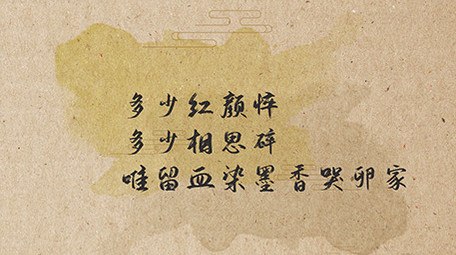 多少红颜悴
多少相思碎
唯留血染墨香哭卵家